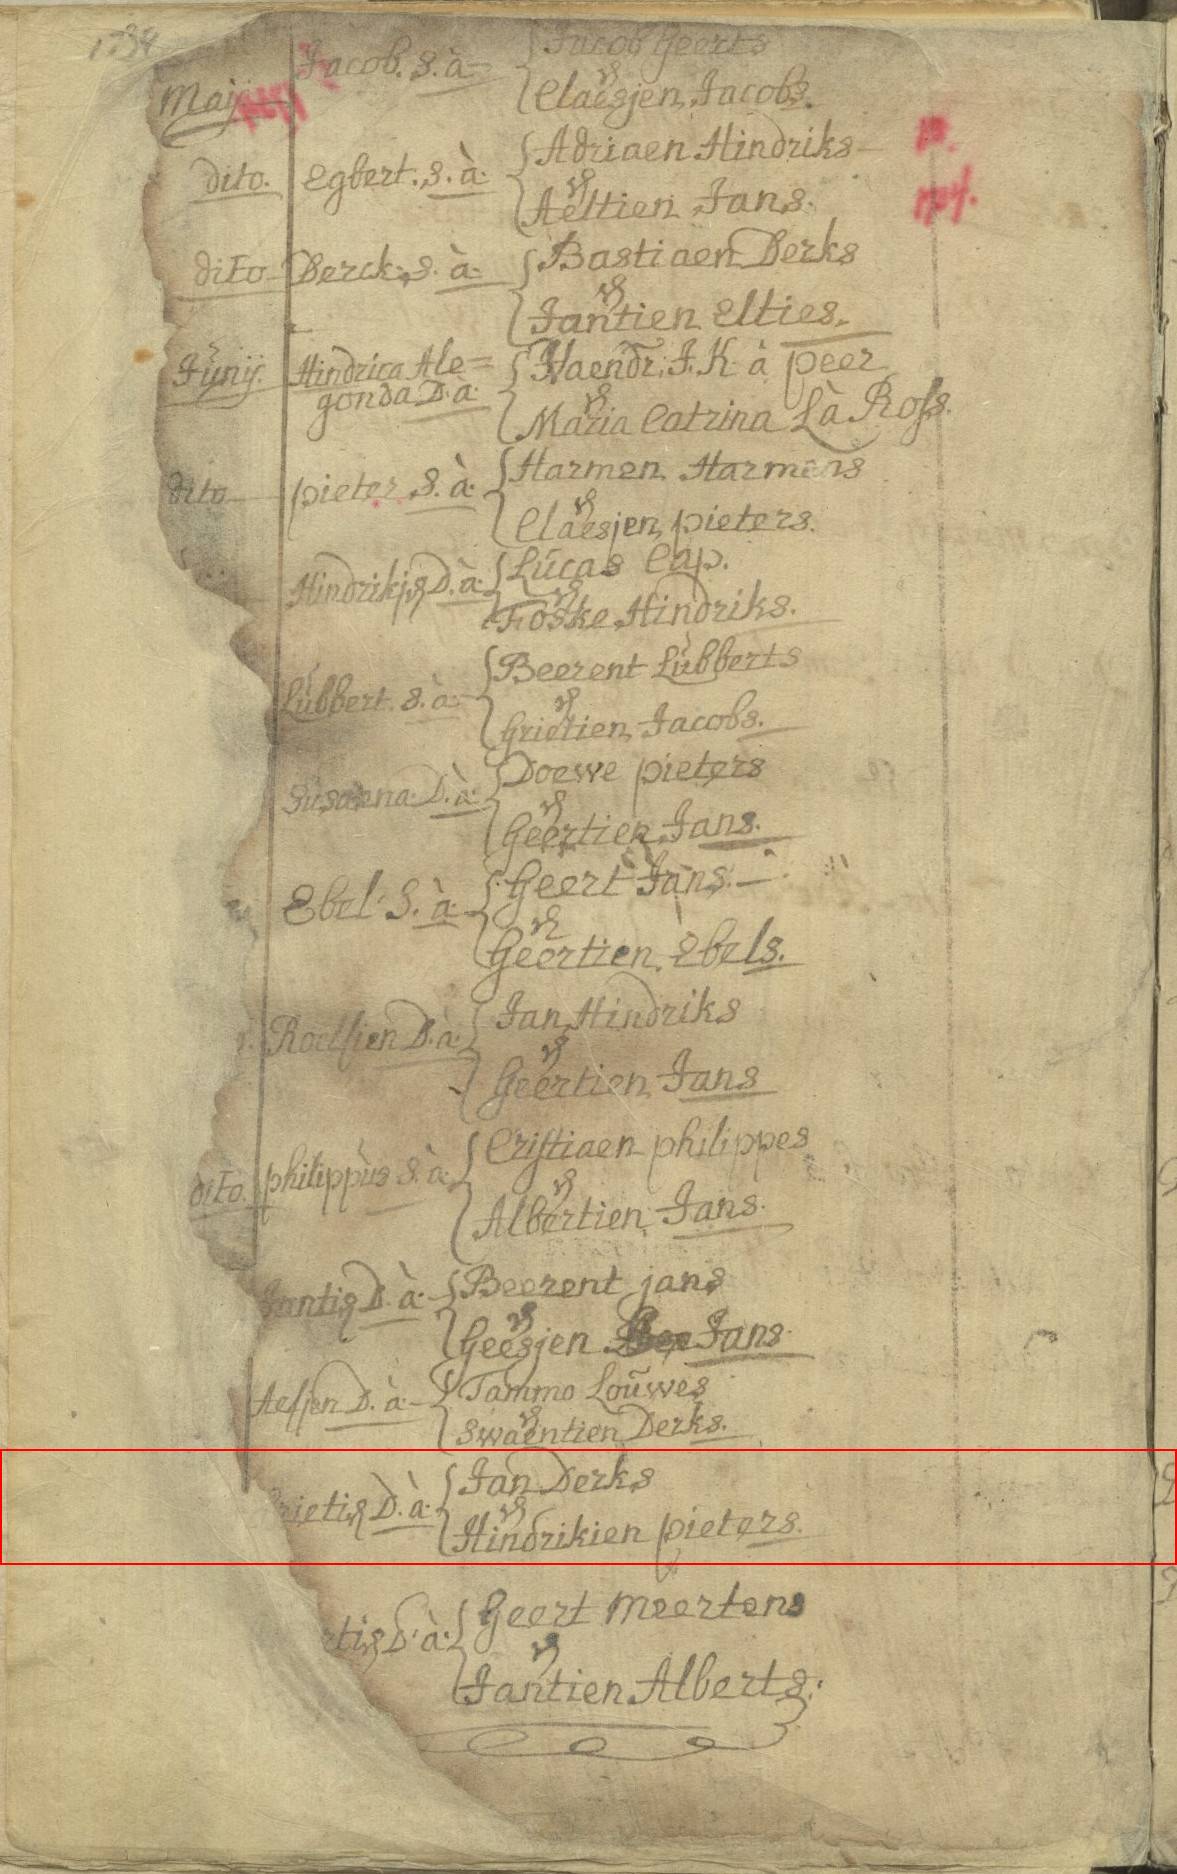 1734
Maij
Jacob. S. à
Jacob Geerts
en
Claesjen Jacobs.
dito. Egbert. S. à.
Adriaen Hindriks
en
Aeltien Jans.
dito Derck. S. à.
Bastiaen Derks
en
Jantien Elties.
Junij. Hindrica Ale=
gonda D. à.
Vaendr. J. K. à peer
en
Maria Catrina Là Ross.
dito pieter S. à.
Harmen Harmens
en
Claesjen pieters.
Hindrikjen D. à.
Lúcas Cap.
en
Foske Hindriks.
Lúbbert. S. à.
Beerent Lúbberts
en
Grietien Jacobs.
Susanna. D. à.
Doewe pieters
en
Geertien Jans.
Ebel. S. à.
Geert Jans.
en
Geertien Ebels.
Roelfien D. à.
Jan Hindriks
en
Geertien Jans
dito. philippús S. à.
Cristiaen philippes
en
Albertien Jans.
Jantien D. à.
Beerent jans
en
Geesjen Jans.
Aefjen D. à.
Tammo Loúwes
en
Swaentien Derks.
rietien D. à.
Jan Derks
en
Hindrikien pieters.
rtien D. à.
Geert Meertens
en
Jantien Alberts.